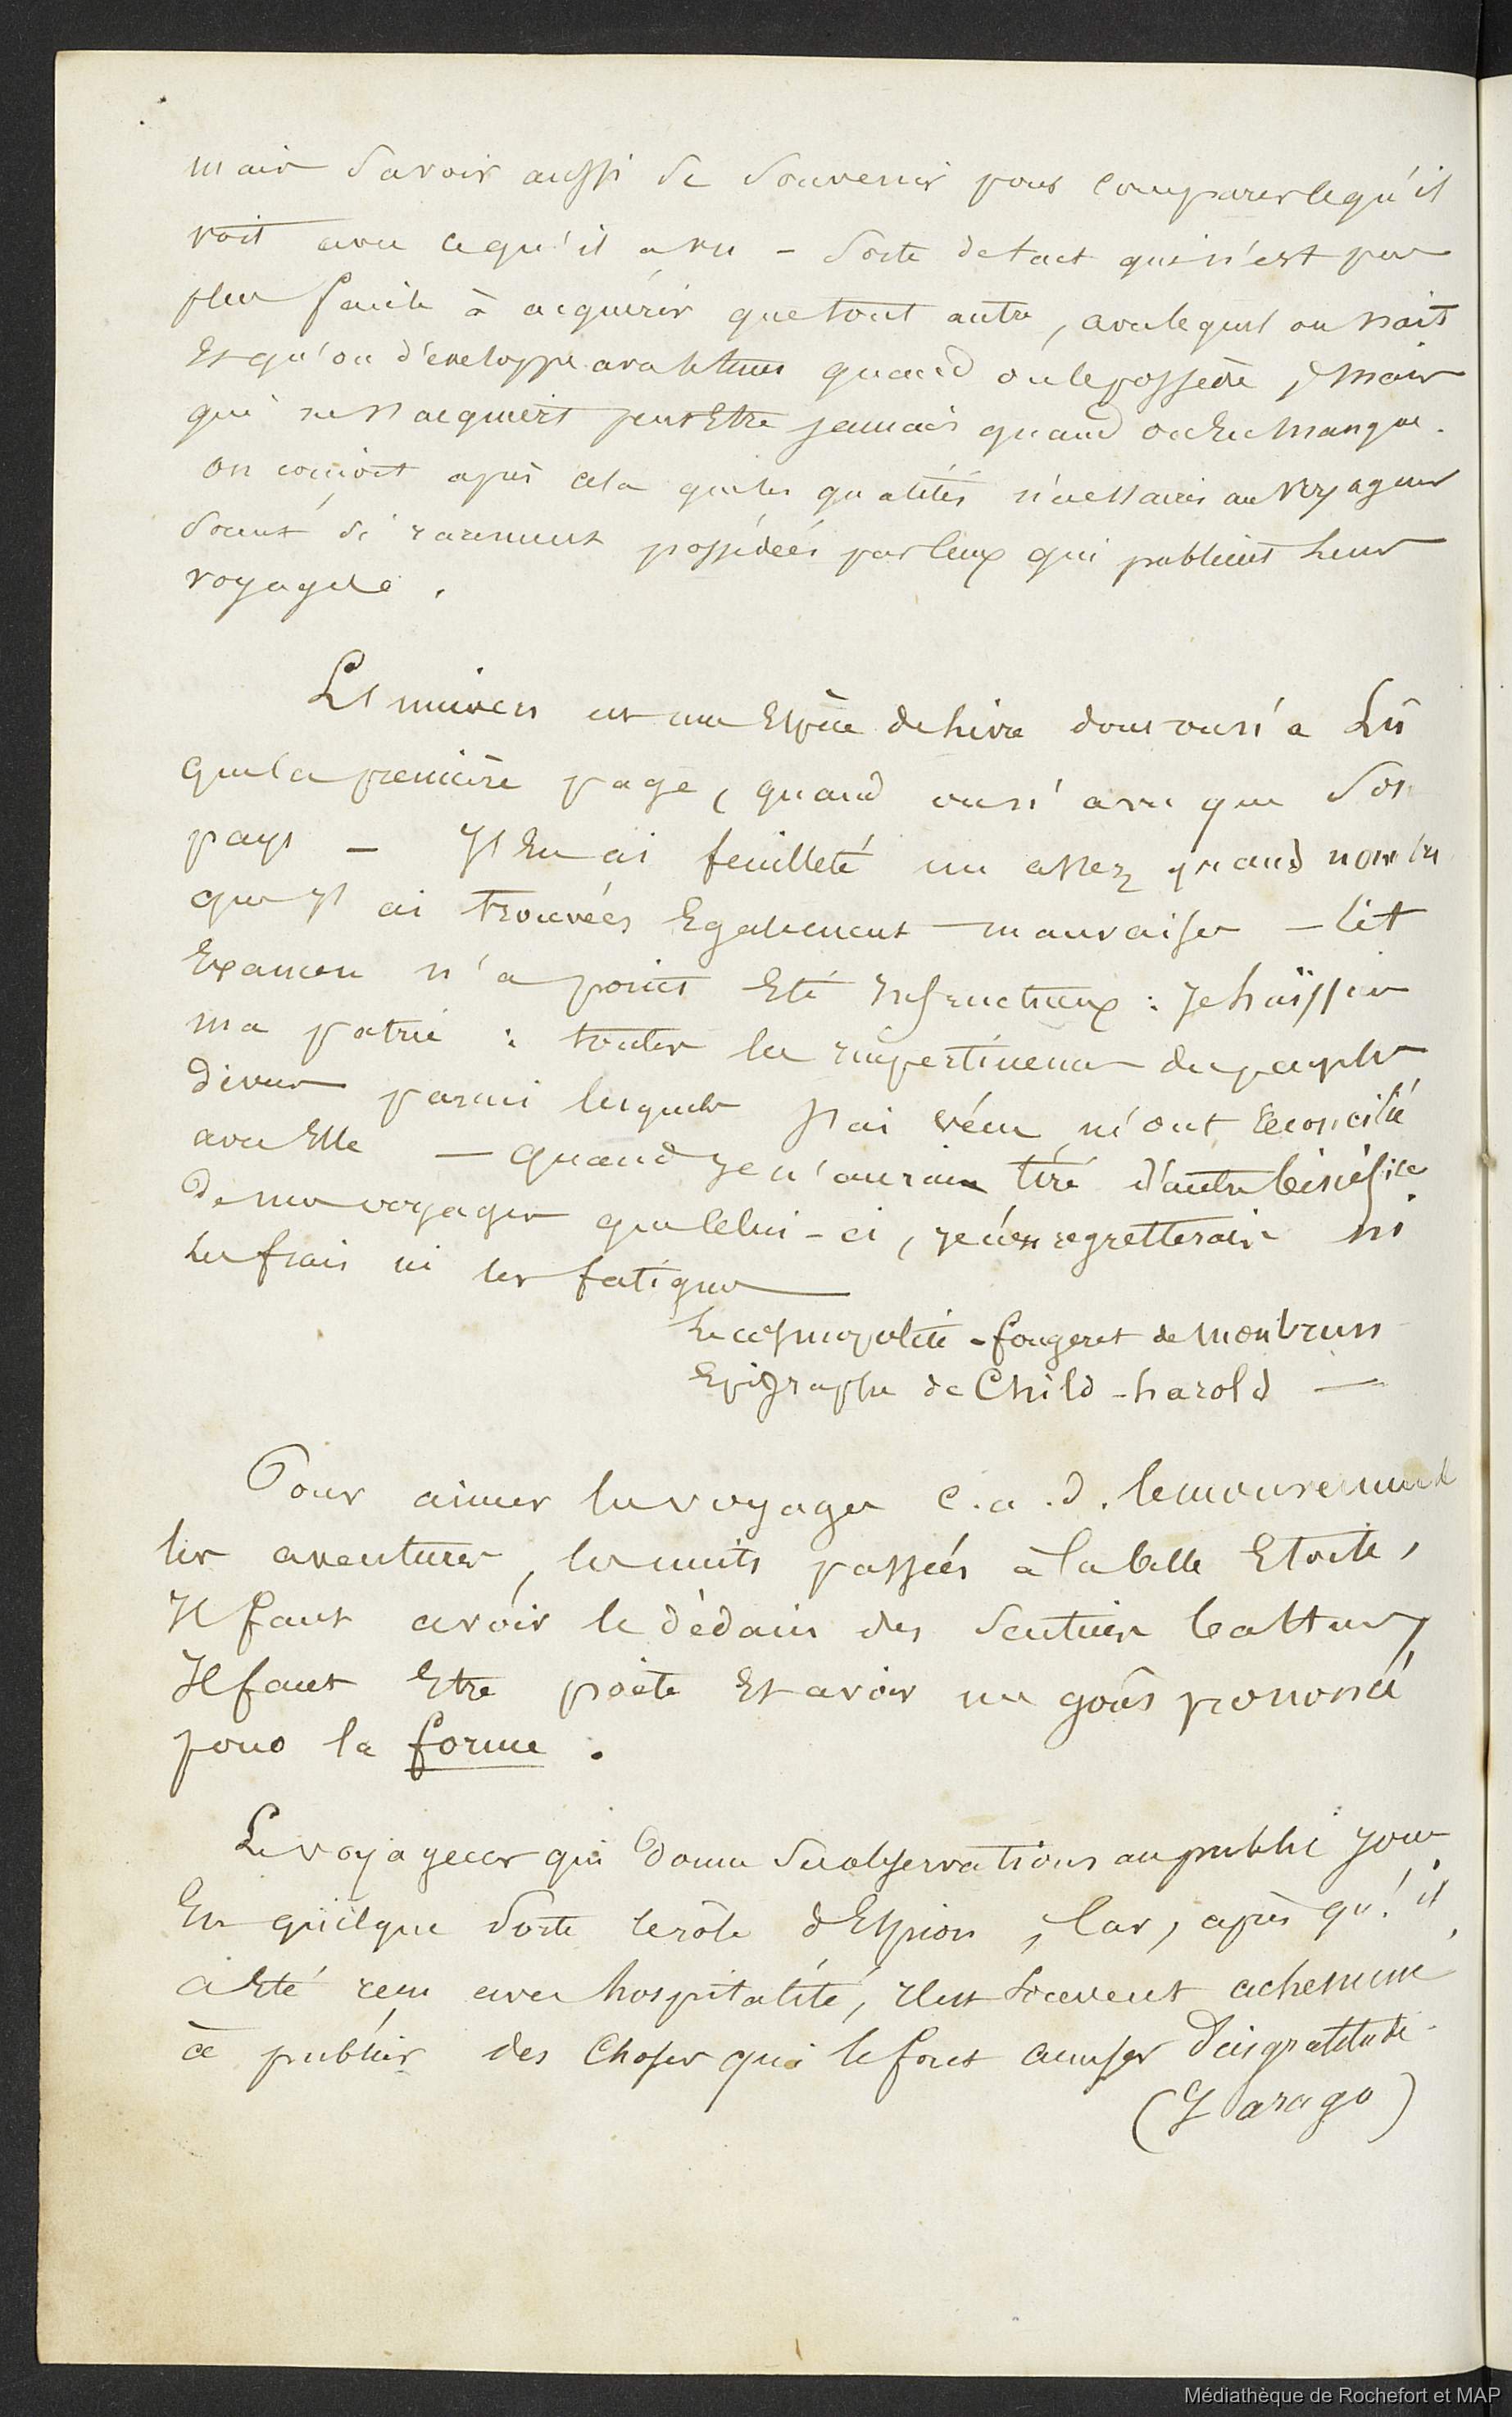 mais savoir aussi se souvenir pour comparer ce qu'il
voit avec ce qu'il a vu - sorte de tact qui n'est pas
plus facile à acquérir que tout autre, avec lequel on nait
Et qu'on développe avec le temps quand on le possède, mais
qui ne s'acquiert peut Etre jamais quand on En manque.
on conçoit après cela que les qualités nécessaires au voyageur
soient si rarement possédées par ceux qui publient leurs
voyages.
L'univers est une Espèce de livre dont on n'a Lû
que la première page, quand on n'a vu que Son
pays — J'En ai feuilleté un assez grand nombre
que j'ai trouvées Egalement mauvaises - Cet
Examen n'a point Eté Infructueux : Je haïssais
ma patrie : toutes les impertinences des peuples
divers parmi lesquels J'ai vécu m'ont réconcilié
avec Elle — quand Je n'aurais tiré d'autre bénéfice
de mes voyages que celui-ci, je n'en regretterais ni
les frais ni les fatigues
Le cosmopolite - fougeret de Monbrun
Epigraphe de Child-harold —
Pour aimer les voyages c.a.d. le mouvement
les aventures, les nuits passées à la belle Etoile,
Il faut avoir le dédain des sentiers battus,
Il faut Etre poète Et avoir un goût prononcé
pour la forme.
Le voyageur qui donne ses observations au public joue
En quelque sorte le rôle d'Espion, Car, après qu'il
a Eté reçu avec hospitalité, Il est souvent acheminé
à publier des Choses qui le font accuser d'ingratitude.
(J arago)
Médiathèque de Rochefort et MAP